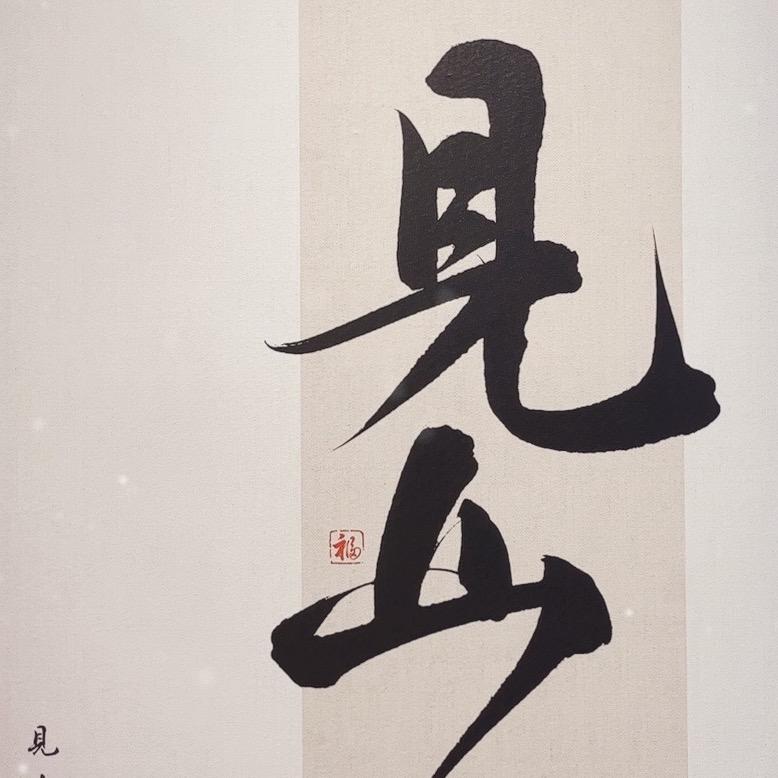 見山
福
見